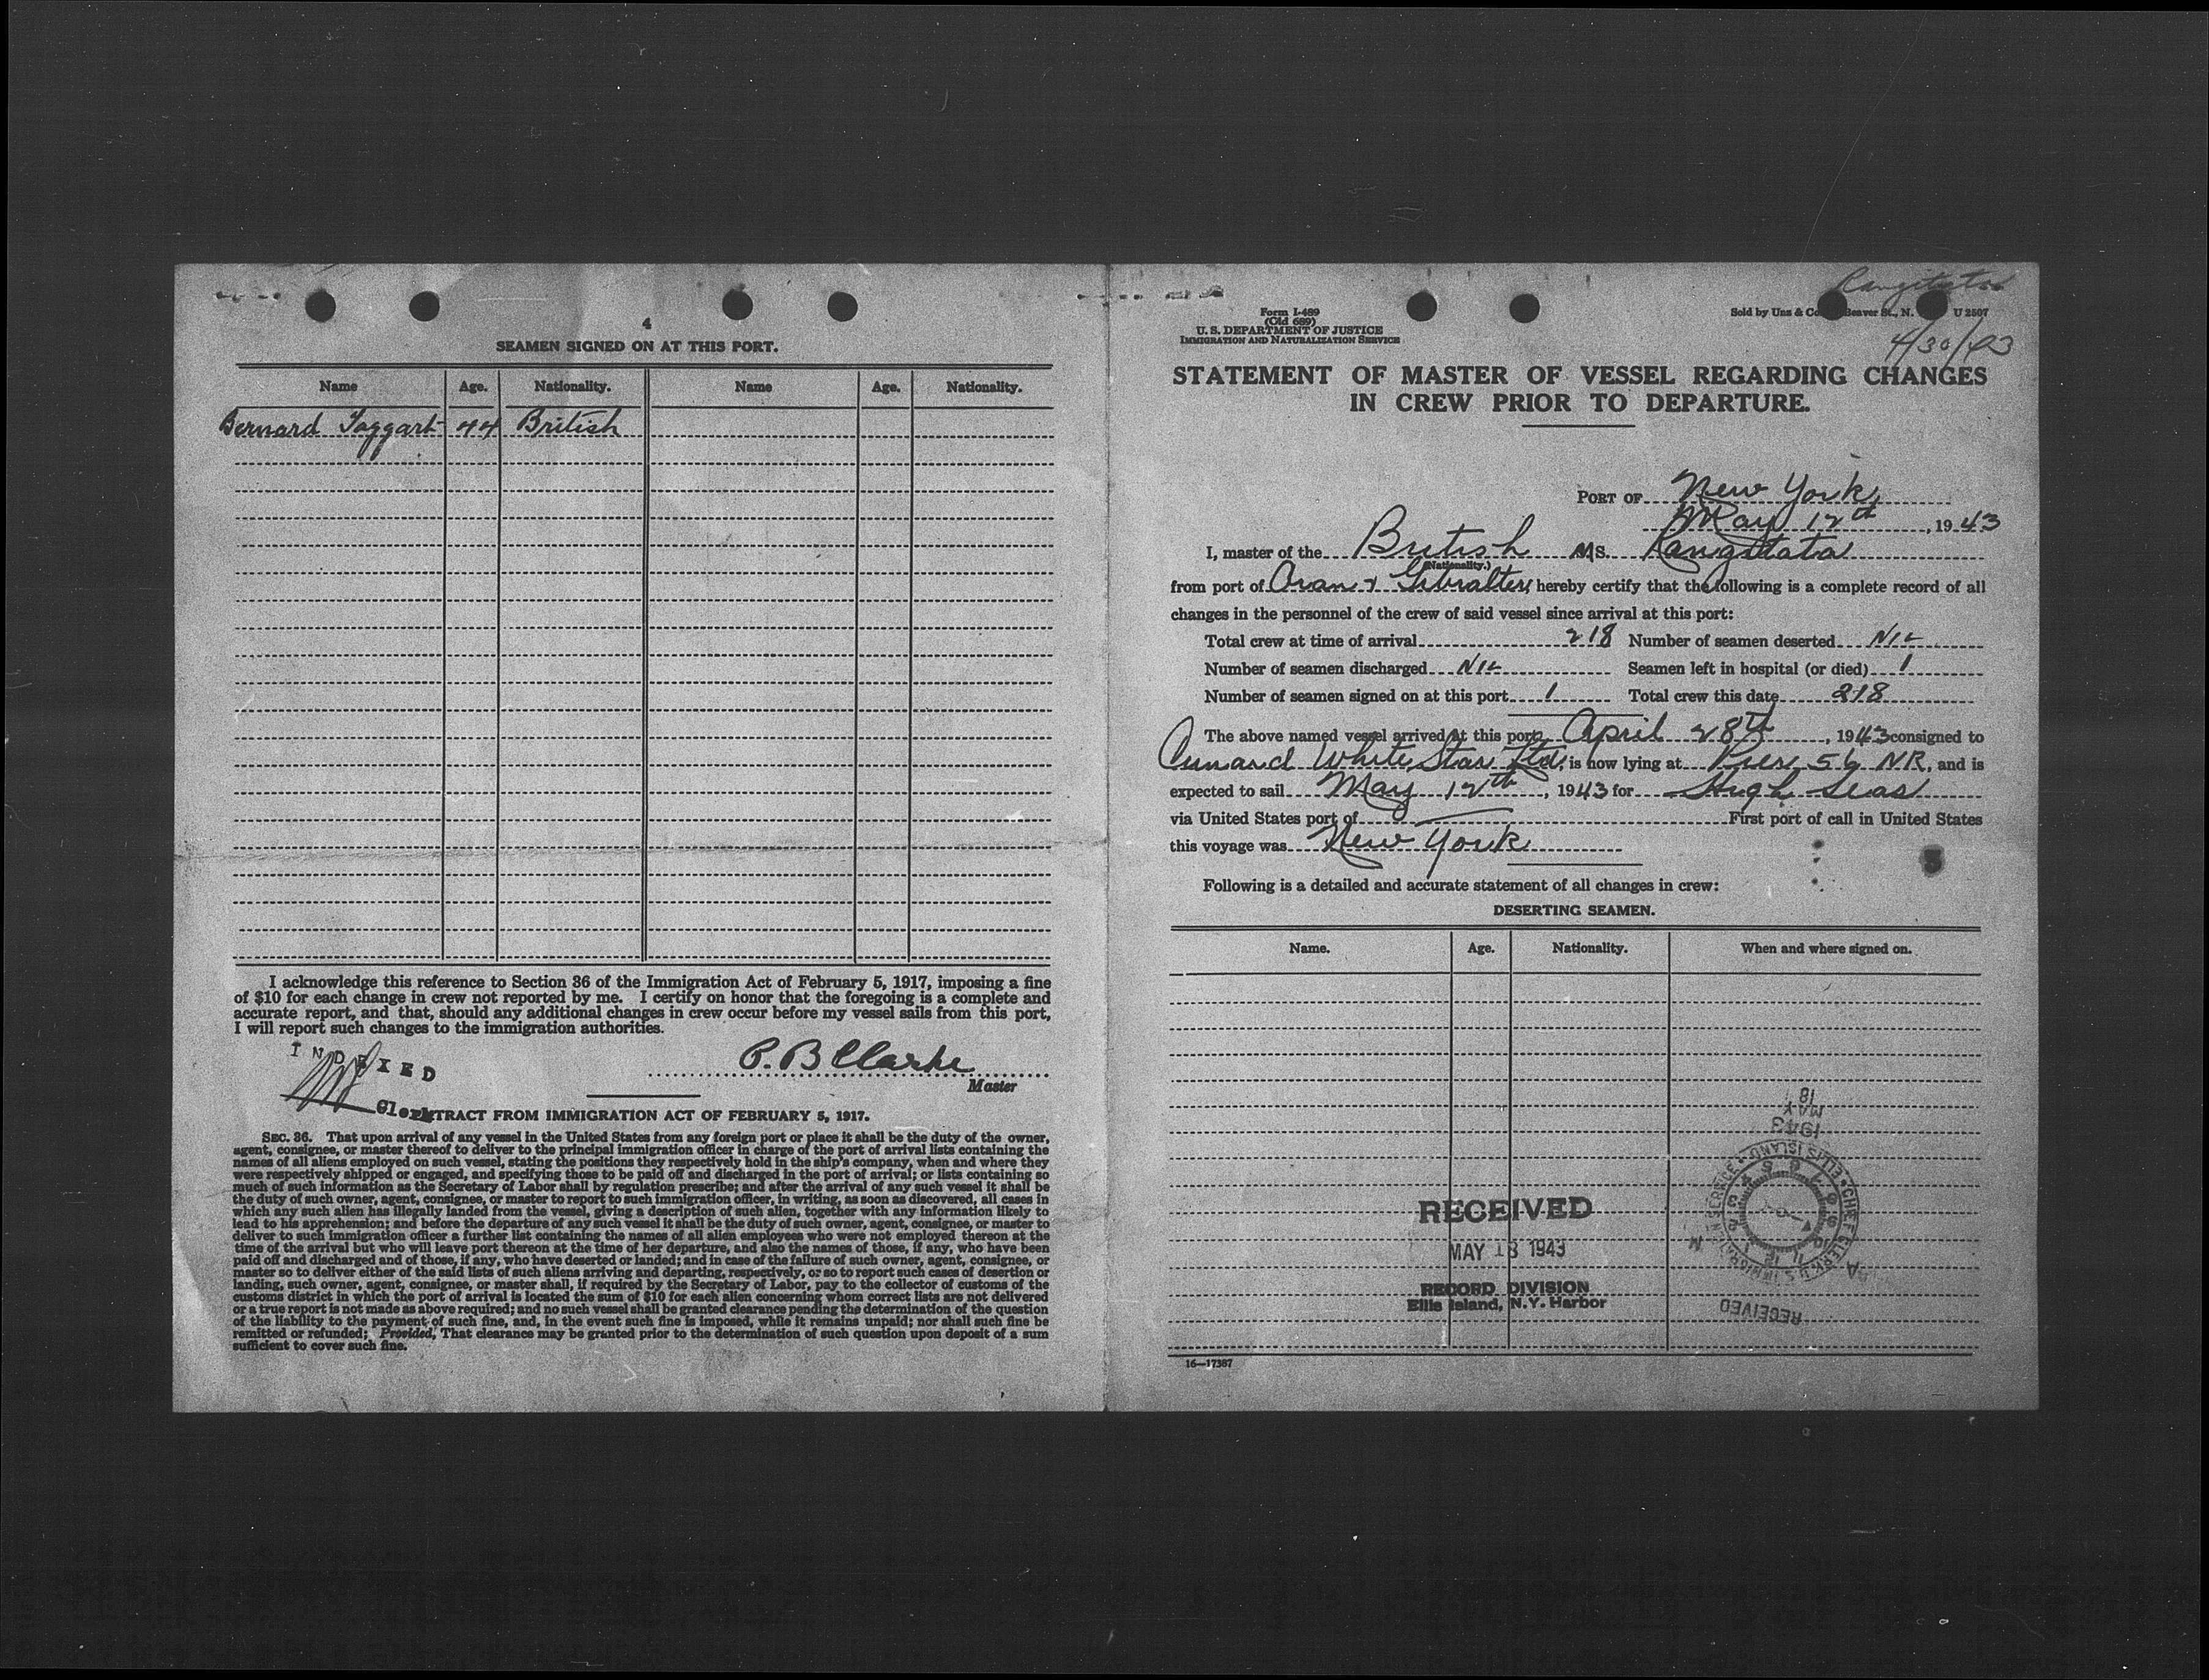 4
SEAMEN SIGNED ON AT THIS PORT.
Name Age. Nationality. Name Age. Nationality.
Bernard Taggart 44 British
I acknowledge this reference to Section 36 of the Immigration Act of February 5, 1917, imposing a fine
of $10 for each change in crew not reported by me. I certify on honor that the foregoing is a complete and
accurate report, and that, should any additional changes in crew occur before my vessel sails from this port,
I will report such changes to the immigration authorities.
INDEXED
P. B Clarke
Master
Clerk
EXTRACT FROM IMMIGRATION ACT OF FEBRUARY 5, 1917.
SEC. 36. That upon arrival of any vessel in the United States from any foreign port or place it shall be the duty of the owner,
agent, consignee, or master thereof to deliver to the principal immigration officer in charge of the port of arrival lists containing the
names of all aliens employed on such vessel, stating the positions they respectively hold in the ship's company, when and where they
were respectively shipped or engaged, and specifying those to be paid off and discharged in the port of arrival; or lists containing so
much of such information as the Secretary of Labor shall by regulation prescribe; and after the arrival of any such vessel it shall be
the duty of such owner, agent, consignee, or master to report to such immigration officer, in writing, as soon as discovered, all cases in
which any such alien has illegally landed from the vessel, giving a description of such alien, together with any information likely to
lead to his apprehension; and before the departure of any such vessel it shall be the duty of such owner, agent, consignee, or master to
deliver to such immigration officer a further list containing the names of all alien employees who were not employed thereon at the
time of the arrival but who will leave port thereon at the time of her departure, and also the names of those, if any, who have been
paid off and discharged and of those, if any, who have deserted or landed; and in case of the failure of such owner, agent, consignee, or
master so to deliver either of the said lists of such aliens arriving and departing, respectively, or so to report such cases of desertion or
landing, such owner, agent, consignee, or master shall, if required by the Secretary of Labor, pay to the collector of customs of the
customs district in which the port of arrival is located the sum of $10 for each alien concerning whom correct lists are not delivered
or a true report is not made as above required; and no such vessel shall be granted clearance pending the determination of the question
of the liability to the payment of such fine, and, in the event such fine is imposed, while it remains unpaid; nor shall such fine be
remitted or refunded; Provided, That clearance may be granted prior to the determination of such question upon deposit of a sum
sufficient to cover such fine.
Rangitata
Form I-489
(Old 689)
U. S. DEPARTMENT OF JUSTICE
IMMIGRATION AND NATURALIZATION SERVICE
Sold by Unz & Co. Beaver St., N. U 2507
4/30/43
STATEMENT OF MASTER OF VESSEL REGARDING CHANGES
IN CREW PRIOR TO DEPARTURE.
PORT OF New York
May 12th, 1943
I, master of the British MS. Rangitata
(Nationality.)
from port of Oran & Gibralter, hereby certify that the following is a complete record of all
changes in the personnel of the crew of said vessel since arrival at this port:
Total crew at time of arrival 218 Number of seamen deserted NIL
Number of seamen discharged NIL Seamen left in hospital (or died) 1
Number of seamen signed on at this port 1 Total crew this date 218
The above named vessel arrived at this port April 28th, 1943 consigned to
Cunard White Star Ltd, is now lying at Pier 56 NR, and is
expected to sail May 12th, 1943 for High Seas
via United States port of First port of call in United States
this voyage was New York
Following is a detailed and accurate statement of all changes in crew:
DESERTING SEAMEN.
Name. Age. Nationality. When and where signed on.
1943
MAY
18
CHIEF CLERK U.S. IMMIGRATION SERVICE ELLIS ISLAND
RECEIVED
RECEIVED
MAY 13 1943
RECORD DIVISION
Ellis Island, N.Y. Harbor
16—17387